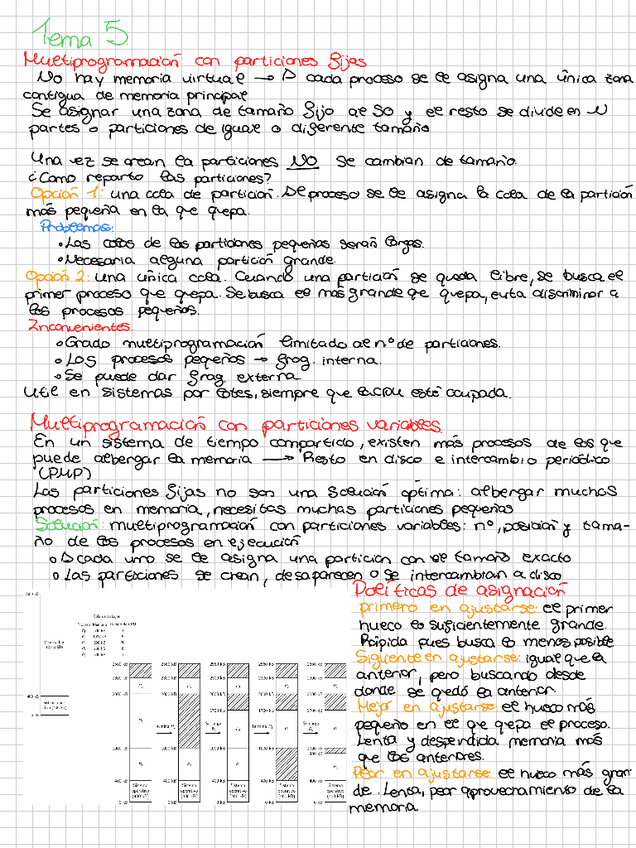 Tema 5
Multiprogramación con particiones fijas
No hay memoria virtual → A cada proceso se le asigna una única zona
contigua de memoria principal
Se asignar una zona de tamaño fijo al SO y el resto se divide en N
partes o particiones de igual o diferente tamaño
Una vez se crean la particiones NO se cambian de tamaño.
¿Como reparto las particiones?
Opción 1: una cola de partición. Al proceso se le asigna la cola de la partición
más pequeña en la que quepa.
Problemas:
• Las colas de las particiones pequeñas serán largas.
• Necesaria alguna partición grande.
Opción 2: una única cola. Cuando una partición se queda libre, se busca el
primer proceso que quepa. Se busca el más grande que quepa, evita discriminar a
los procesos pequeños.
Inconvenientes
• Grado multiprogramación limitado al nº de particiones.
• Los procesos pequeños → frag. interna.
• Se puede dar frag externa
Util en sistemas por lotes, siempre que la CPU esté ocupada.
Multiprogramación con particiones variables.
En un sistema de tiempo compartido, existen más procesos de los que
puede albergar la memoria → Resto en disco e intercambio periódico
(PMP)
Las particiones fijas no son una solución óptima: albergar muchos
procesos en memoria, necesitas muchas particiones pequeñas
Solución: multiprogramación con particiones variables: nº, posición y tama-
ño de los procesos en ejecución
• A cada uno se le asigna una partición con el tamaño exacto
• Las particiones se crean, desaparecen o se intercambian a disco
Políticas de asignación
primero en ajustarse: el primer
hueco lo suficientemente grande.
Rápida pues busca lo menos posible
Siguiente en ajustarse: igual que la
anterior, pero buscando desde
donde se quedó la anterior.
Mejor en ajustarse el hueco más
pequeño en el que quepa el proceso.
Lenta y desperdicia memoria más
que las anteriores.
Peor en ajustarse el hueco más gran
de. Lenta, peor aprovechamiento de la
memoria